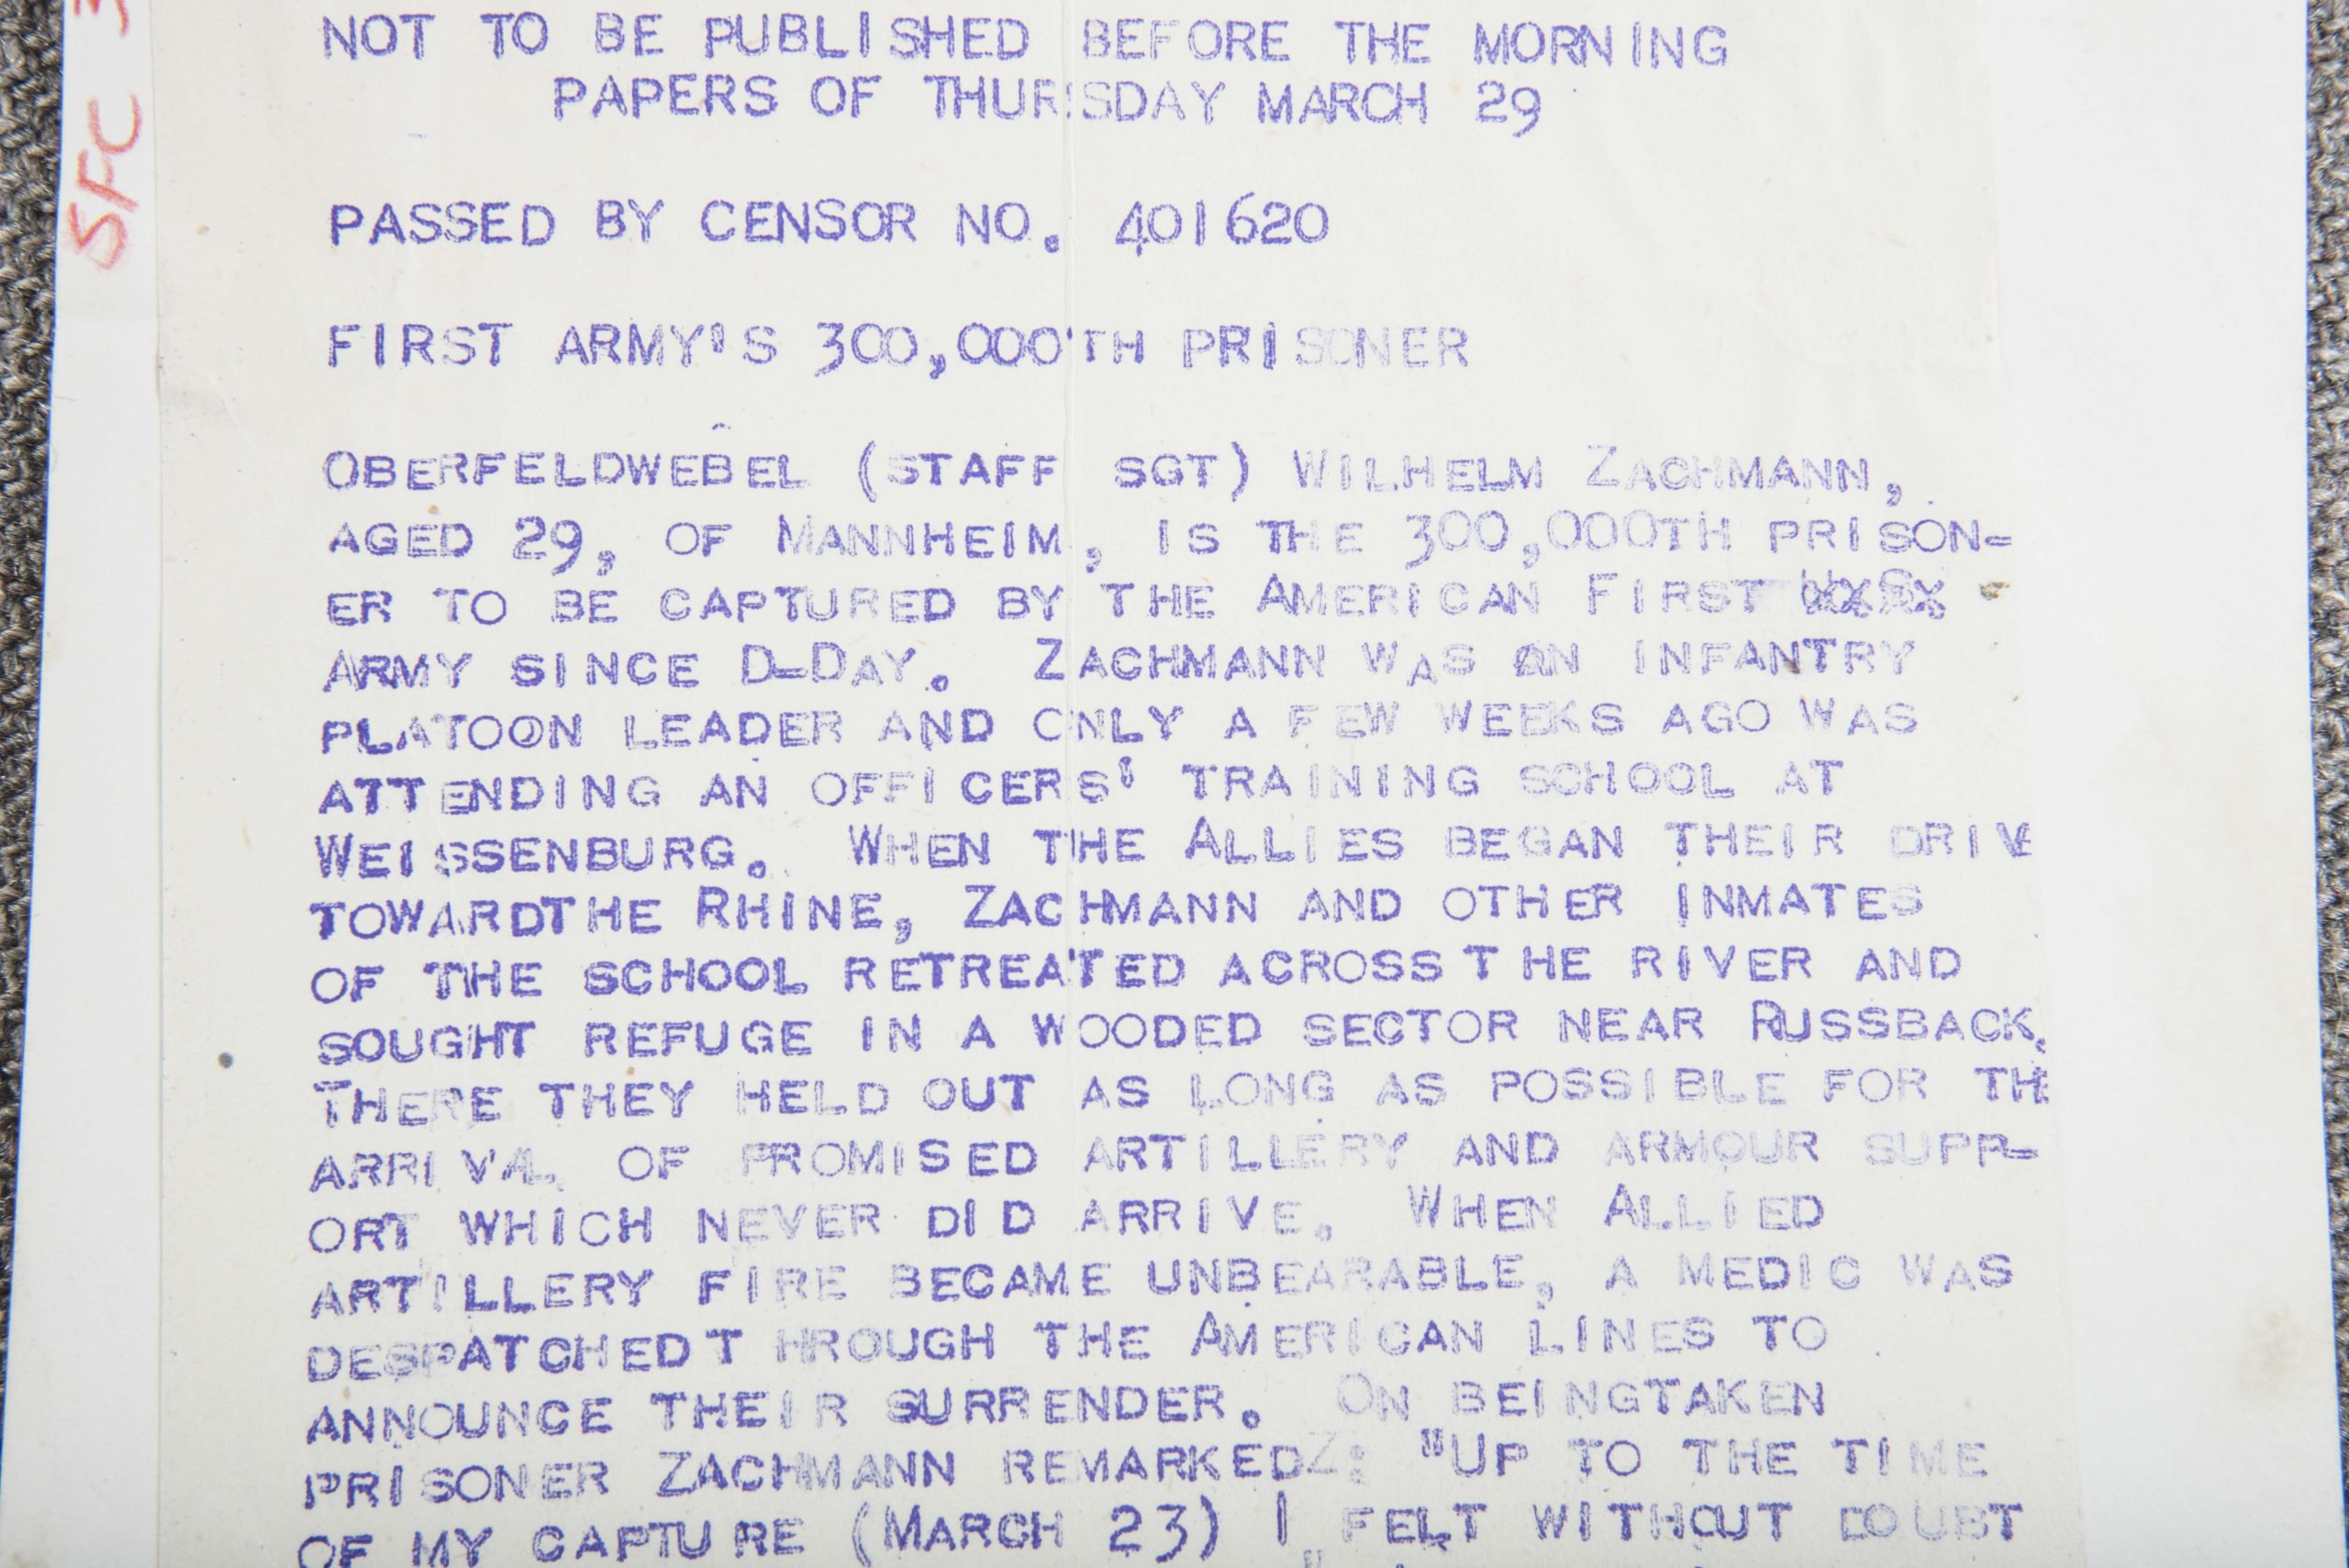 SFC 3
NOT TO BE PUBLISHED BEFORE THE MORNING
PAPERS OF THURSDAY MARCH 29
PASSED BY CENSOR NO. 401620
FIRST ARMY'S 300,000'TH PRISONER
OBERFELDWEBEL (STAFF SGT) WILHELM ZACHMANN,
AGED 29, OF MANNHEIM, IS THE 300,000TH PRISON-
ER TO BE CAPTURED BY THE AMERICAN FIRST
ARMY SINCE D-DAY. ZACHMANN WAS AN INFANTRY
PLATOON LEADER AND ONLY A FEW WEEKS AGO WAS
ATTENDING AN OFFICERS' TRAINING SCHOOL AT
WEISSENBURG. WHEN THE ALLIES BEGAN THEIR DRIVE
TOWARDTHE RHINE, ZACHMANN AND OTHER INMATES
OF THE SCHOOL RETREATED ACROSS T HE RIVER AND
SOUGHT REFUGE IN A WOODED SECTOR NEAR RUSSBACK.
THERE THEY HELD OUT AS LONG AS POSSIBLE FOR TH
ARRIVAL OF PROMISED ARTILLERY AND ARMOUR SUPP-
ORT WHICH NEVER DID ARRIVE. WHEN ALLIED
ARTILLERY FIRE BECAME UNBEARABLE, A MEDIC WAS
DESPATCHED T HROUGH THE AMERICAN LINES TO
ANNOUNCE THEIR SURRENDER. ON BEINGTAKEN
PRISONER ZACHMANN REMARKEDZ: "UP TO THE TIME
OF MY CAPTURE (MARCH 23) I FELT WITHOUT DOUBT